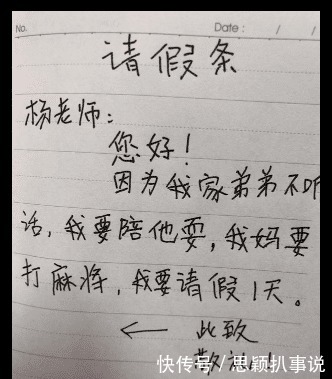 No.
Date: / /
请假条
杨老师：
您好！
因为我家弟弟不听
话，我要陪他耍，我妈要
打麻将，我要请假1天。
← 此致
敬礼！
快传号/思颖扒事说